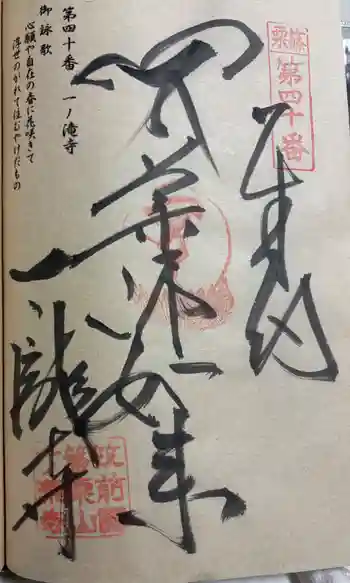 篠栗
第四十番
奉納
薬師如来
一ノ滝寺
第四十番 一ノ滝寺
御詠歌
心願や自在の春に花咲きて
浮世のがれて住むやけだもの